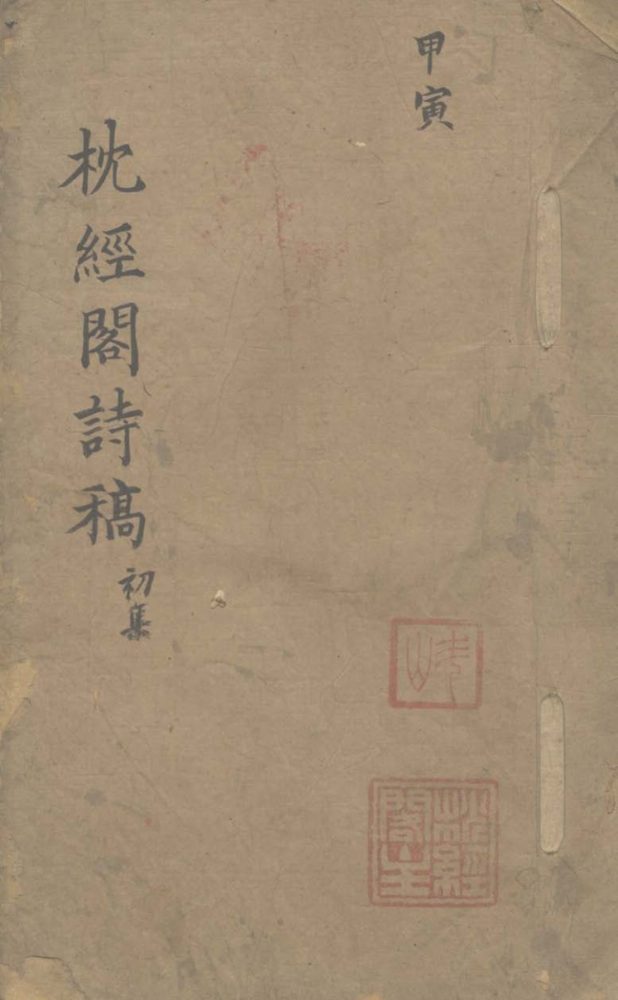 甲寅
枕經閣詩稿
初集
枕經
閣主